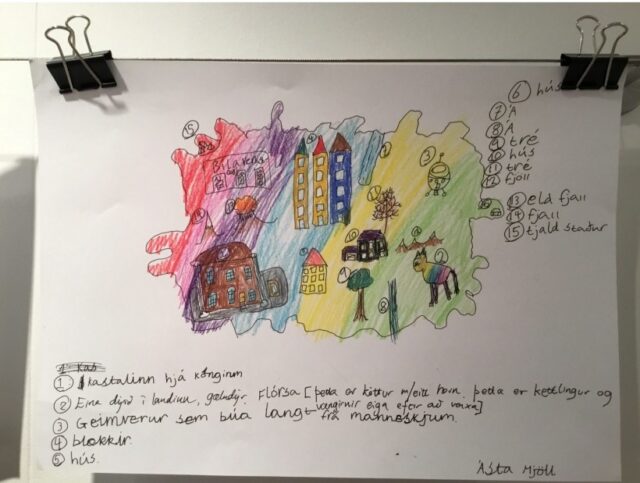 ⑥ hús
⑦ Á
⑧ Á
⑨ tré
⑩ hús
⑪ tré
⑫ fjoll
⑬ eld fjall
⑭ fjall
⑮ tjald staður
① kastalinn hjá kónginum
② Eina dýrið í landinu, gæludýr. Flórsa [þetta er köttur m/eitt horn. þetta er kettlingur og
vængirnir eiga eftir að vaxa]
③ Geimverur sem búa langt frá manneskjum.
④ blokkir
⑤ hús.
Ásta Mjöll